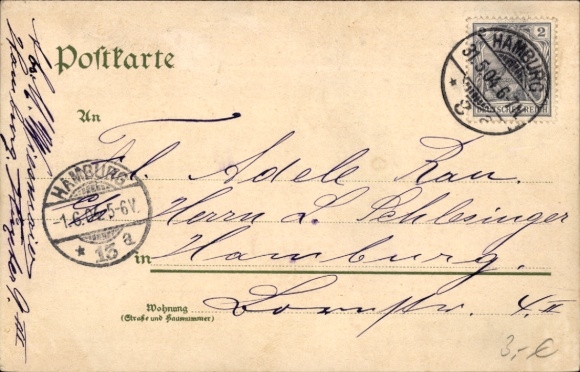 Postkarte
An
Frl. Adele Rau.
Herrn L. Schlesinger
in Hamburg.
Wohnung
(Straße und Hausnummer)
Bornstr. 4 II
HAMBURG
31.5.04. 6-7 N.
* 2
2
DEUTSCHES REICH
HAMBURG
1.6.04. 5-6 V.
* 13 a.
Hamburg,
3,- €